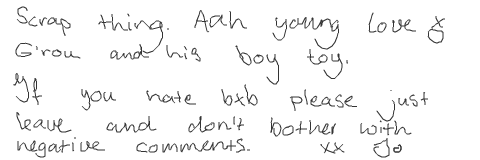 Scrap thing. Aah young love
G'rou and his boy toy.
If you hate bxb please just
leave and don't bother with
negative comments. xx Jo